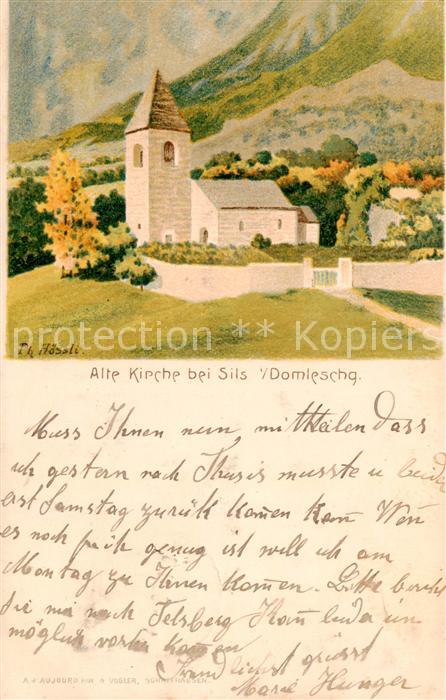 Ph. Hössli.
protection ** Kopierschutz
Alte Kirche bei Sils i/Domleschg.
Muss Ihnen nun mittheilen dass
ich gestern nach Thusis musste u leider
erst Samstag zurück komen kan Wen
es noch früh genug ist will ich am
Montag zu Ihnen komen. Bitte
Sie mir nach Felsberg Kan leider un
möglich vorher komen
Freundlichst grüsst
Marie Hunger
VOGLER, SCHAFFHAUSEN.